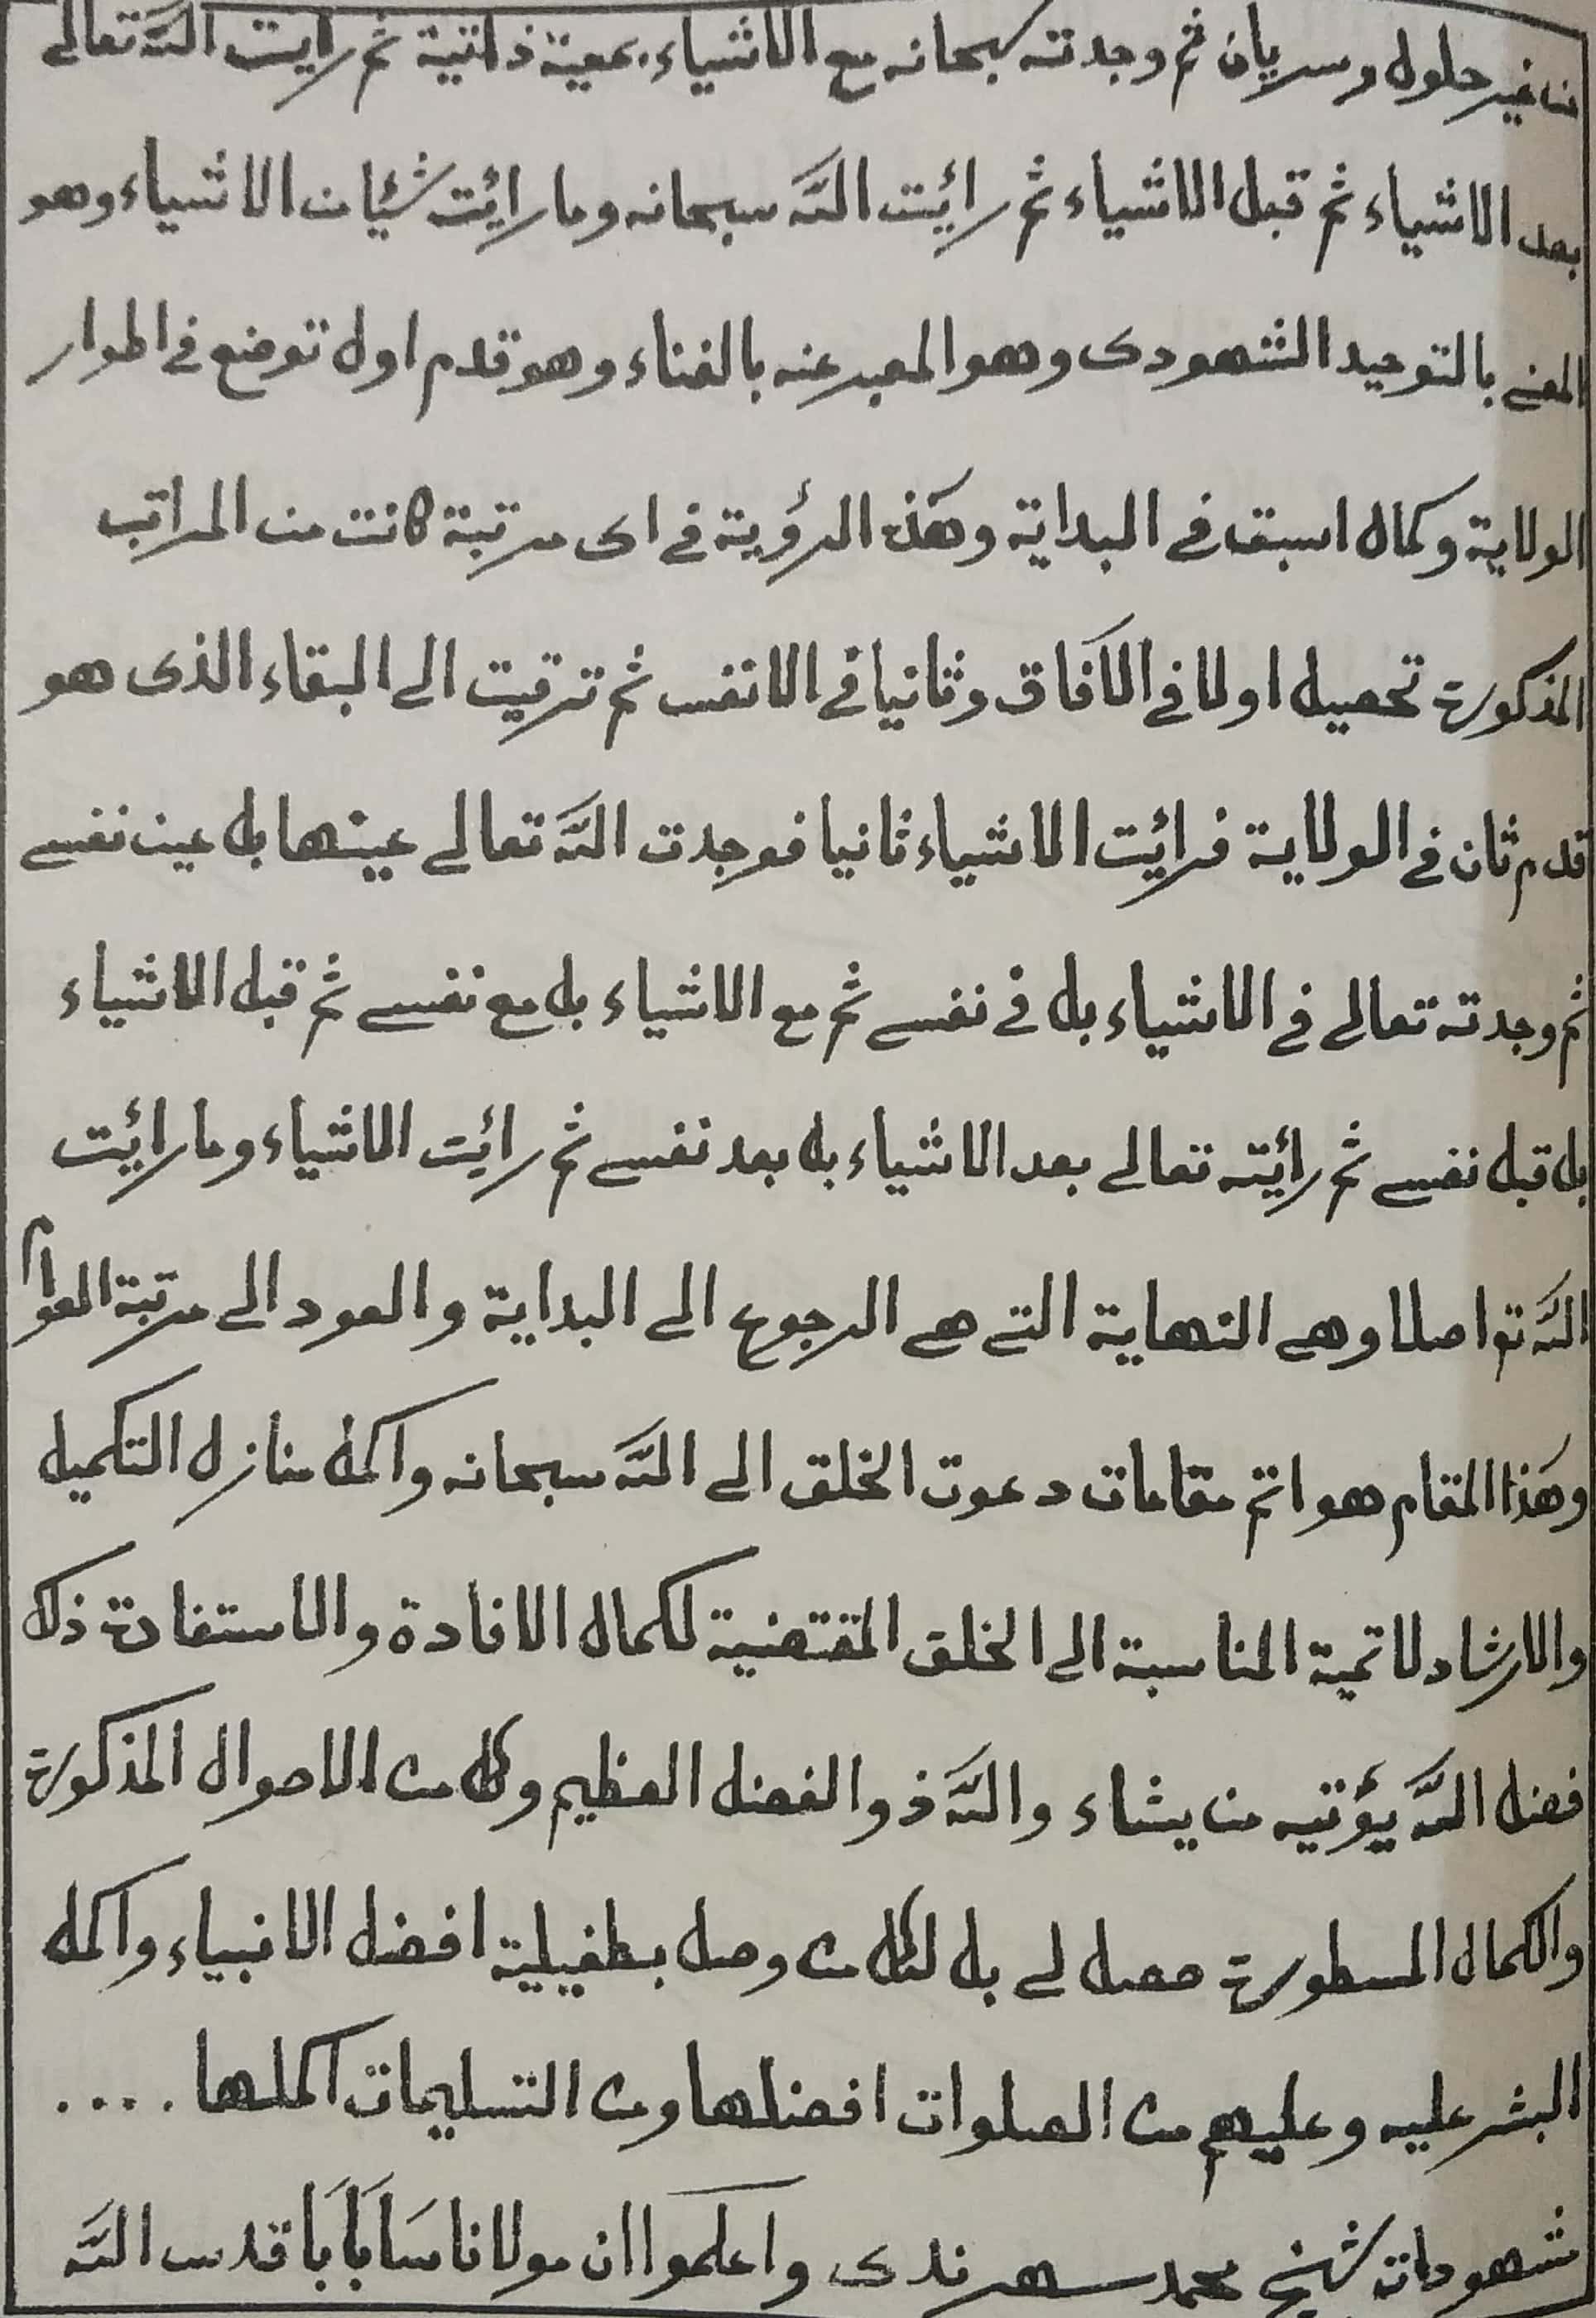 من غير حلول وسريان ثم وجدته سبحانه مع الاشياء بمعية ذاتية ثم رايت الله تعالى
بعد الاشياء ثم قبل الاشياء ثم رائيت الله سبحانه وما رائيت شئيان الاشياء وهو
المعنى بالتوحيد الشهودى وهو المعبر عنه بالفناء وهو قدم اول توضع فى اطوار
الولاية وكمال اسبق فى البداية وهذه الرؤية فى اى مرتبة كانت من المراتب
المذكورة تحصيل اولا فى الآفاق وثانيا فى الانفس ثم ترقيت الى البقاء الذى هو
قدم ثان فى الولاية فرائيت الاشياء ثانيا فوجدت الله تعالى عينها بل عين نفسى
ثم وجدته تعالى فى الاشياء بل فى نفسى ثم مع الاشياء بل مع نفسى ثم قبل الاشياء
بل قبل نفسى ثم رأيته تعالى بعد الاشياء بل بعد نفسى ثم رائيت الاشياء وما رائيت
الله تو اصلا وهى النهاية التى هى الرجوع الى البداية والعود الى مرتبة العوام
وهذا المقام هو اتم مقامات دعوت الخلق الى الله سبحانه واكمل منازل التكميل
والارشاد لاتمية المناسبة الى الخلق المقتضية لكمال الافادة والاستفادة ذلك
فضل الله يؤتيه من يشاء والله ذو الفضل العظيم وكل من الاحوال المذكورة
والكمال المسطورة حصل لى بل لكل من وصل بطفيلية افضل الانبياء واكمل
البشر عليه وعليهم من الصلوات افضلها ومن التسليمات اكملها ....
شهودات شيخ محمد سهرندى واعلموا ان مولانا سَابَابَا قدس الله